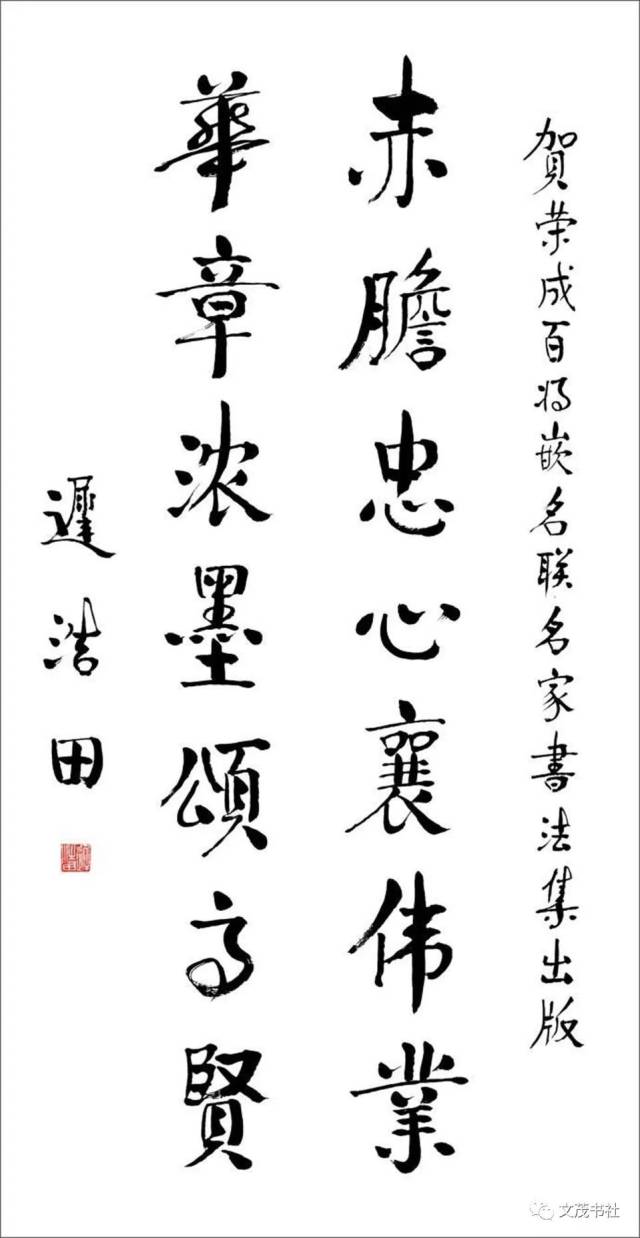 贺荣成百将嵌名联名家书法集出版
赤膽忠心襄伟業
華章浓墨頌高賢
遲浩田
文茂书社